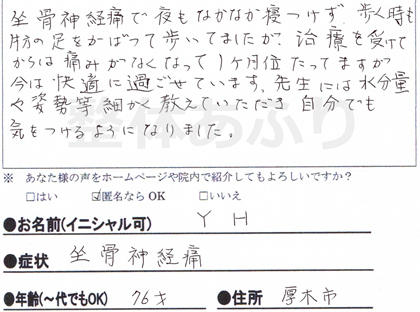 坐骨神経痛で夜もなかなか寝つけず、歩く時も
片方の足をかばって歩いてましたが、治療を受けて
からは痛みがなくなって1ヶ月位たってますが
今は快適に過ごせています。先生には水分量
や姿勢等細かく教えていただき自分でも
気をつけるようになりました。
整体あふり
※ あなた様の声をホームページや院内で紹介してもよろしいですか?
□はい ☑匿名なら OK □いいえ
●お名前(イニシャル可) Y H
●症状 坐骨神経痛
●年齢(~代でもOK) 76才 ●住所 厚木市